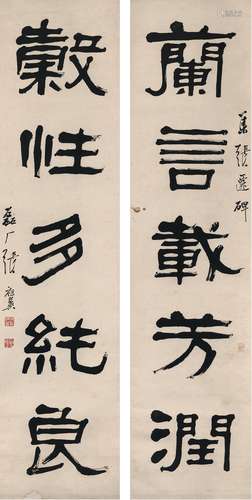 蘭言載芳潤
集張遷碑
穀性多純良
磊厂張祖翼